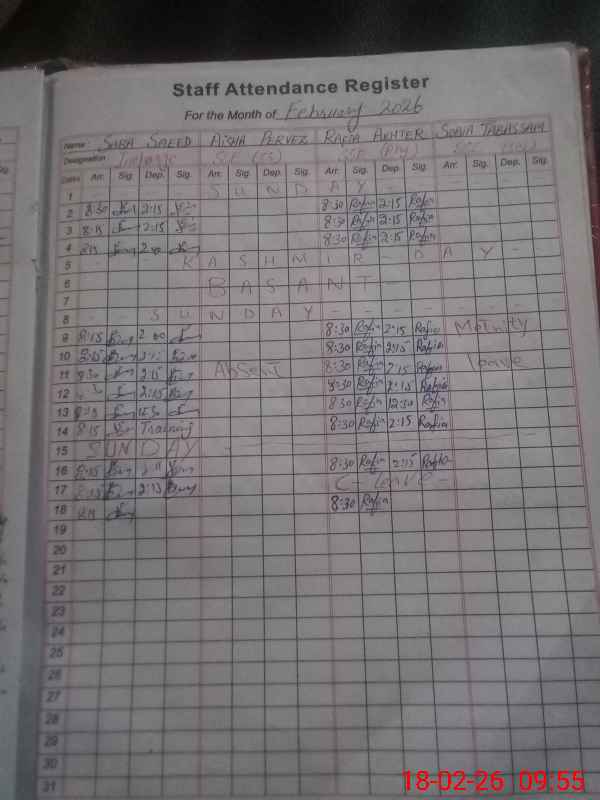 Staff Attendance Register
For the Month of February 2026
Name : SABA SAEED AISHA PERVEZ RAFIA AKHTER SOBIA TABASSAM
Designation SSE (CS) SSE (Phy)
Dates Arr. Sig. Dep. Sig. Arr. Sig. Dep. Sig. Arr. Sig. Dep. Sig. Arr. Sig. Dep. Sig.
1 SUNDAY
2 8:30 2:15 8:30 Rafia 2:15 Rafia
3 8:15 2:15 8:30 Rafia 2:15 Rafia
4 8:30 Rafia 2:15 Rafia
5 KASHMIR - DAY -
6 BASANT -
7
8 - - SUNDAY - - - - - -
9 8:15 2:00 8:30 Rafia 2:15 Rafia
10 8:30 Rafia 2:15 Rafia
11 8:30 2:15 Absent 8:30 Rafia 2:15 Rafia leave
12 2:15 8:30 Rafia 2:15 Rafia
13 12:30 8:30 Rafia 12:30 Rafia
14 8:15 Training 8:30 Rafia 2:15 Rafia
15 SUNDAY
16 8:15 8:30 Rafia 2:15 Rafia
17 8:15 2:15 C- leave -
18 8:30 Rafia
19
20
21
22
23
24
25
26
27
28
29
30
31
18-02-26 09:55